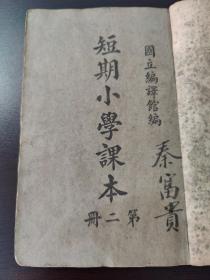 國立編譯館編
短期小學課本
第二冊
秦富貴